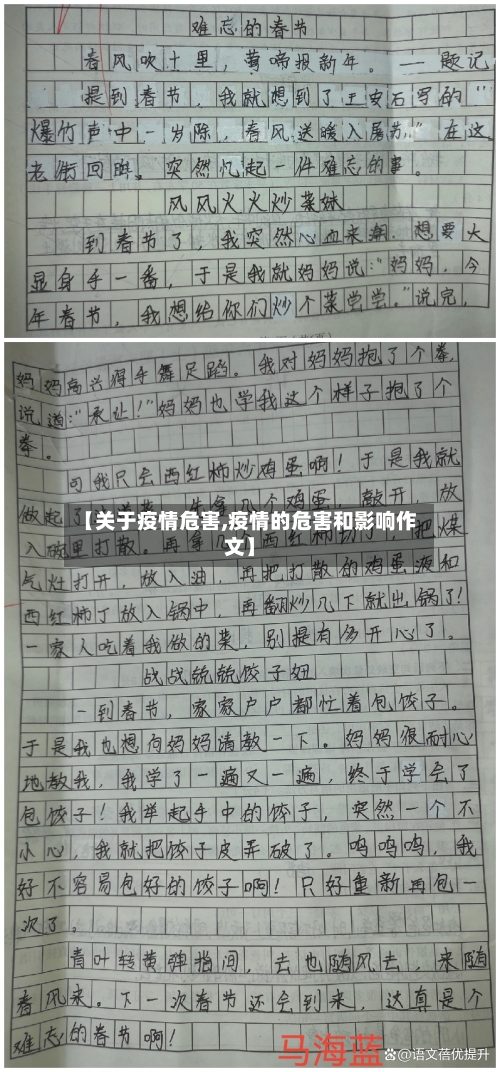 难忘的春节
春风吹十里，莺啼报新年。——题记
提到春节，我就想到了王安石写的“
爆竹声中一岁除，春风送暖入屠苏。”在这
老街回眸。突然忆起一件难忘的事。
风风火火炒菜妹
到春节了，我突然心血来潮，想要大
显身手一番，于是我就妈妈说：“妈妈，今
年春节，我想给你们炒个菜尝尝。”说完，
妈妈高兴得手舞足蹈。我对妈妈抱了个拳，
说道：“承让！”妈妈也学我这个样子抱了个
拳。
可我只会西红柿炒鸡蛋啊！于是我就
做起了 个鸡蛋，敲开，放
【关于疫情危害,疫情的危害和影响作
文】
入碗里打散。再拿几个西红柿切丁，把煤
气灶打开，放入油，再把打散的鸡蛋液和
西红柿丁放入锅中，再翻炒几下就出锅了！
一家人吃着我做的菜，别提有多开心了。
战战兢兢饺子妞
一到春节，家家户户都忙着包饺子。
于是我也想向妈妈请教一下。妈妈很耐心
地教我，我学了一遍又一遍，终于学会了
包饺子！我举起手中的饺子，突然一个不
小心，我就把饺子皮弄破了。呜呜呜，我
好不容易包好的饺子啊！只好重新再包一
次了。
青叶转黄弹指间，去也随风去，来随
春风来。下一次春节还会到来，这真是个
难忘的春节啊！
马海蓝
语文蓓优提升